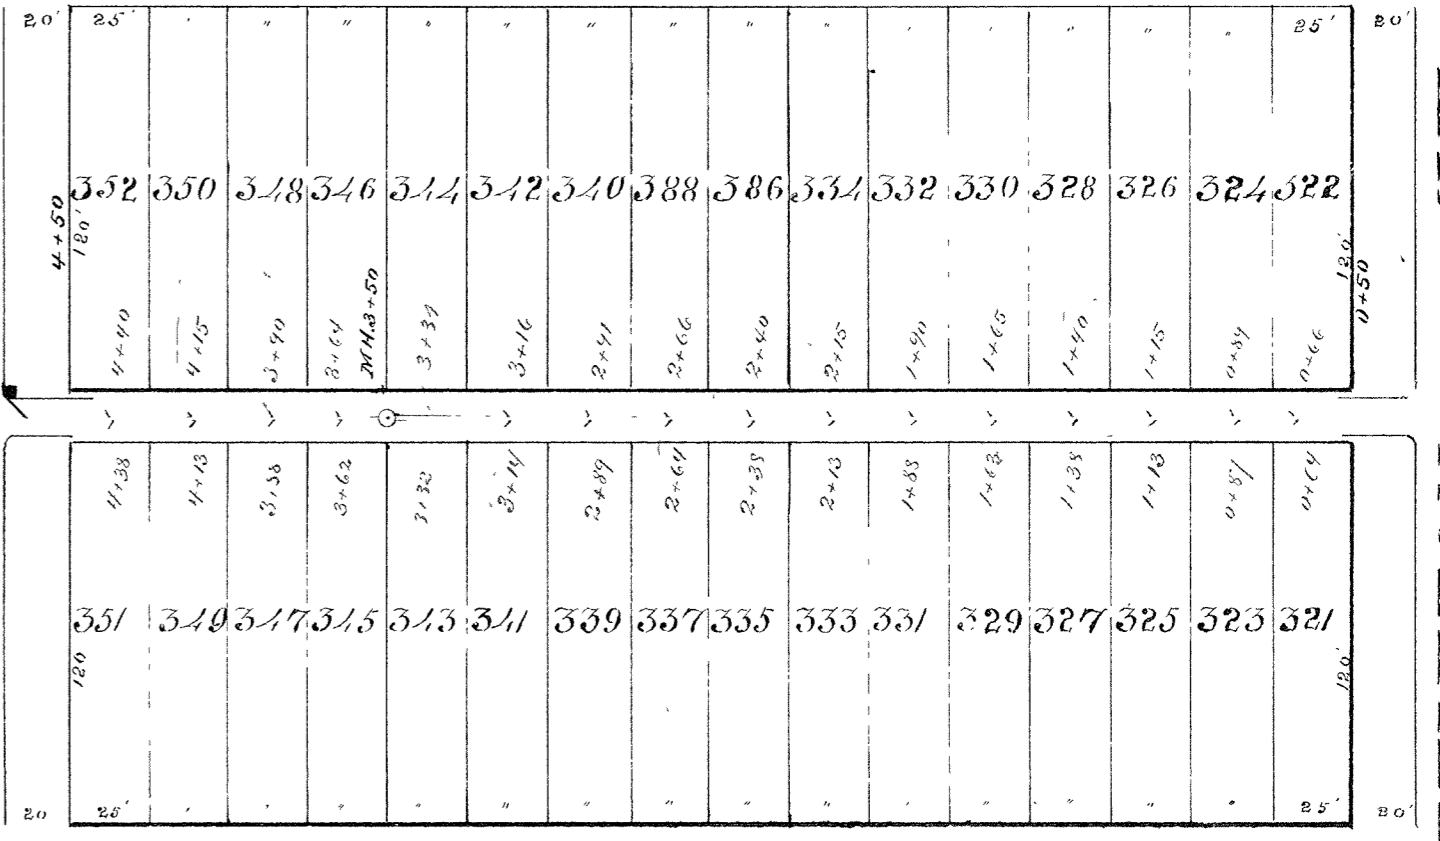 20' 25' ' " " " " " " " " ' ' " " " 25' 20'
352 350 348 346 344 342 340 388 386 334 332 330 328 326 324 322
4+50 120' 120' 0+50
4+40 4+15 3+90 3+64 M.H.3+50 3+34 3+16 2+91 2+66 2+40 2+15 1+90 1+65 1+40 1+15 0+89 0+66
4+38 4+13 3+88 3+62 3+32 3+14 2+89 2+64 2+38 2+13 1+88 1+63 1+38 1+13 0+87 0+64
351 349 347 345 343 341 339 337 335 333 331 329 327 325 323 321
120 120'
20 25' ' ' " " " " " " ' " " " " 25' 20'